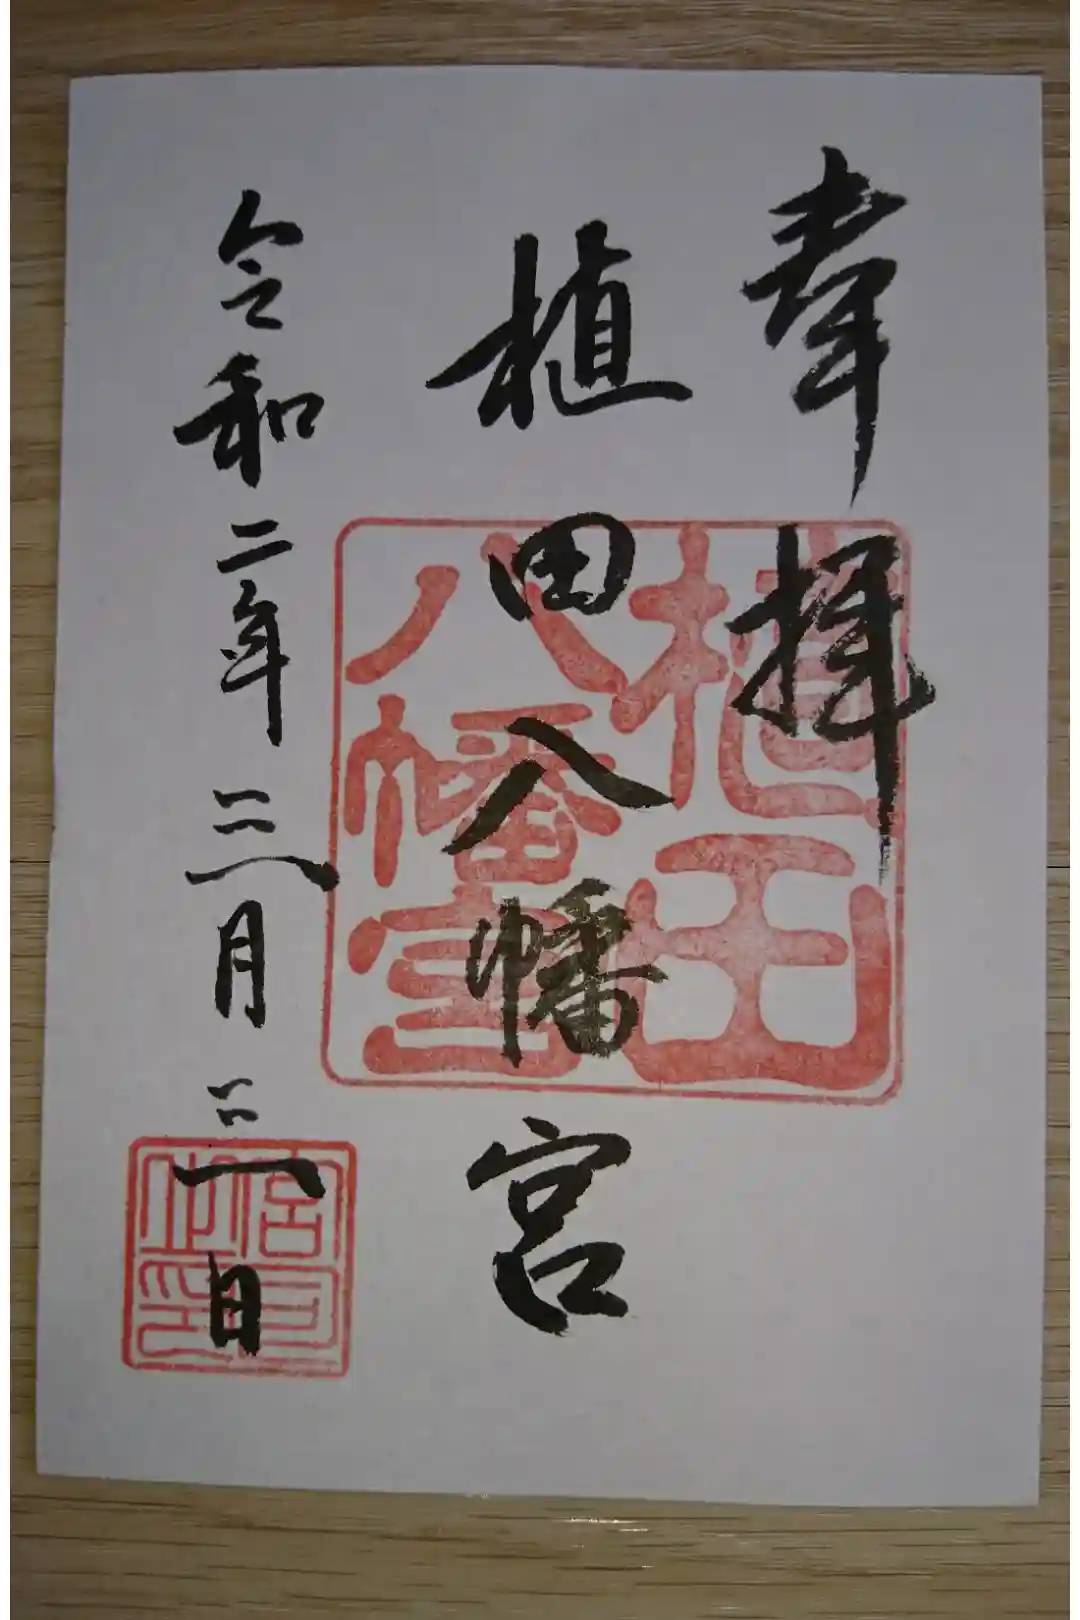 奉拝
植田八幡宮
令和二年三月三日
植田
八幡宮
宮司
之印